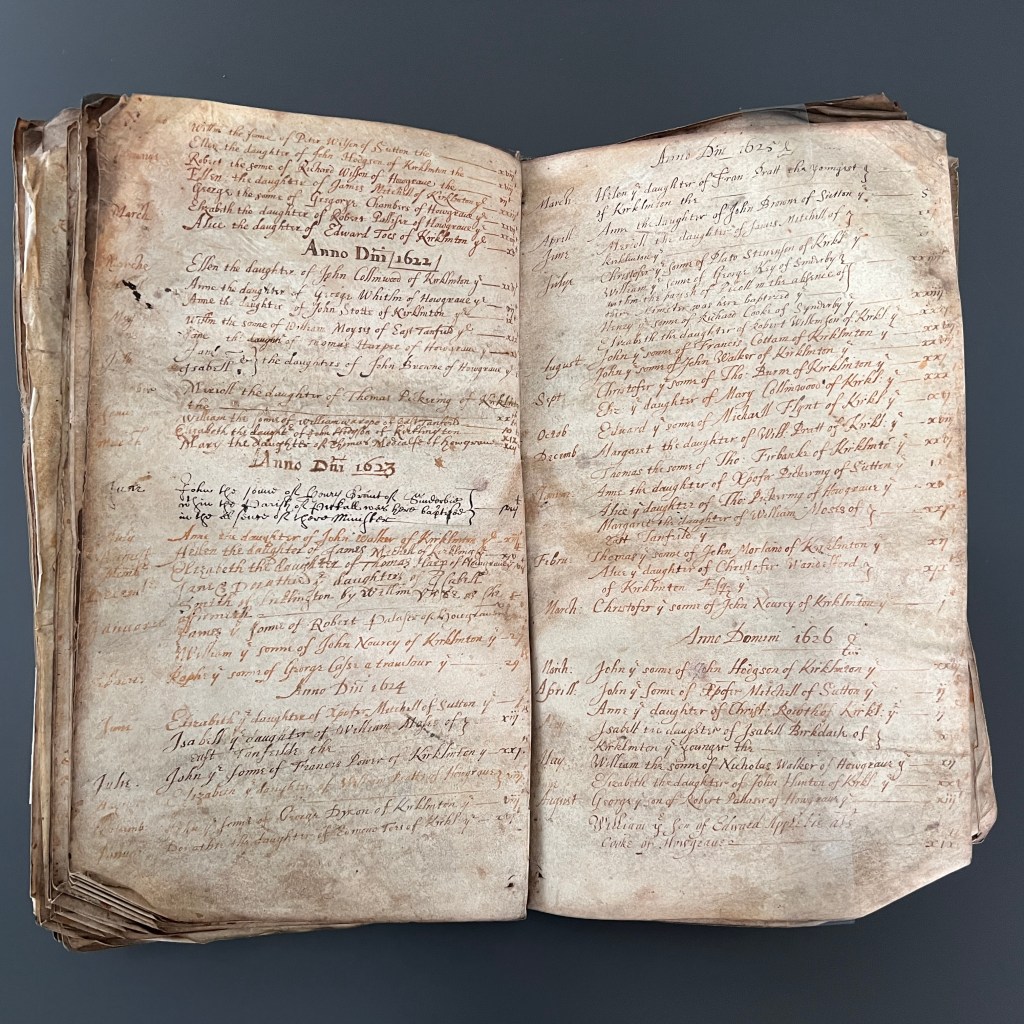 Willm the sonne of Peter Wilson of Sutton the
Ellen the daughter of John Hodgson of Kirklinton the
Robert the sonne of Richard Wilson of Howgraue the
Ellen the daughter of James Mitchell of Kirklinton ye
George the sonne of Gregorye Chambers of Howgraue ye
March Elizabeth the daughter of Robert Palliser of Howgraue ye
Alice the daughter of Edward Toes of Kirklinton ye
Anno Dni 1622
Ellen the daughter of John Collinwood of Kirklinton ye
Anne the daughter of George Whitlin of Howgraue ye
Anne the daughter of John Stotte of Kirklinton ye
Willm the soone of William Moysis of East Tanfeild ye
Jane the daughter of Thomas Harpe of Howgraue ye
Isabell the daughters of John Browne of Howgraue ye
Merioll the daughter of Thomas Pickering of Kirklinton
the
William the sonne of William a rope of East Tanfeild
Elizabeth the daughter of John Hodgson of
Mary the daughter of Thomas Metcalfe of Howgraue
Anno Dni 1623
June John the sonne of Henry Brant of Sinderbie
within the Parish of Pickall was here baptised
in the absence of there Minister
July Anne the daughter of John Walker of Kirklinton ye
Hellen the daughter of James Mitchell of Kirklington ye
Elizabeth the daughter of Thomas Harp of Howgraue ye
Jane & Dorathie ye daughters of Isabell
by Willm as she
affirmeth
Januarie James ye sonne of Robert Palaser of Howgraue
William ye sonne of John Nourcy of Kirklinton ye
Raphe ye sonne of George Casse a travlour ye 29
Anno Dni 1624
June Elizabeth ye daughter of Xpofer Mitchell of Sutton ye
Isabell ye daughter of William Mosie of xiij
East Tanfeilde the
Julie John ye sonne of Francis Power of Kirklinton ye xxj
Izabeth ye daughter of Howgraue
ye sonne of George Dixon of Kirklinton ye viij
Dorathie the daughter of Edmond Toes of Kirkl ye
Anno Dni 1625
March Helen ye daughter of Fran Pratt the youngest
of Kirklinton the
April Anne the daughter of John Browne of Sutton ye 5
June Meriell the daughter of James Mitchell of
Kirklinton ye
Julye Christofer ye sonne of Plato Stevenson of Kirkl ye
William ye sonne of George Kay of Sinderby
within the parish of Pickell in the absence of
their minister was here baptized ye
Henry ye sonne of Richard Cooke of Synderby ye
Elizabeth the daughter of Robert Wilkenson of Kirkl ye
John ye sonne of Francis Cottam of Kirklinton ye
August John ye sonne of John Walker of Kirklinton ye
Christofer ye sonne of Tho: Burm of Kirklinton ye
Sept ye daughter of Mary Collinwood of Kirkl: ye
Octob Edward ye sonne of Michaell Flynt of Kirkl ye
Decemb Margaret the daughter of Will: Pratt of Kirkl: ye
Thomas the sonne of Tho: Firbanke of Kirklinto ye
Anne the daughter of Xpofer Pickering of Sutton ye
Alice ye daughter of Tho: Pickering of Howgraue ye
Margaret the daughter of William Moses of
East Tanfeilde ye
Febru Thomas ye sonne of John Morland of Kirklinton ye
Alice ye daughter of Christofer Wandesford
of Kirklinton Esqr ye
March: Christofer ye sonne of John Nourcy of Kirklinton ye
Anno Domini 1626
March: John ye sonne of John Hodgson of Kirklinton ye
Aprill John ye sonne of Xpofer Mitchell of Sutton ye ij
Anne ye daughter of Christ: Rowth of Kirkl: ye ij
Isabell the daughter of Isabell Birkdale of
Kirklinton ye younger the
May William the sonne of Nicholas Walker of Howgraue ye xj
Elizabeth the daughter of John Hunton of Kirkl ye
August George ye son of Robert Pallaser of Howgraue ye xiij
William ye Son of Edward
Cooke of Howgraue xix